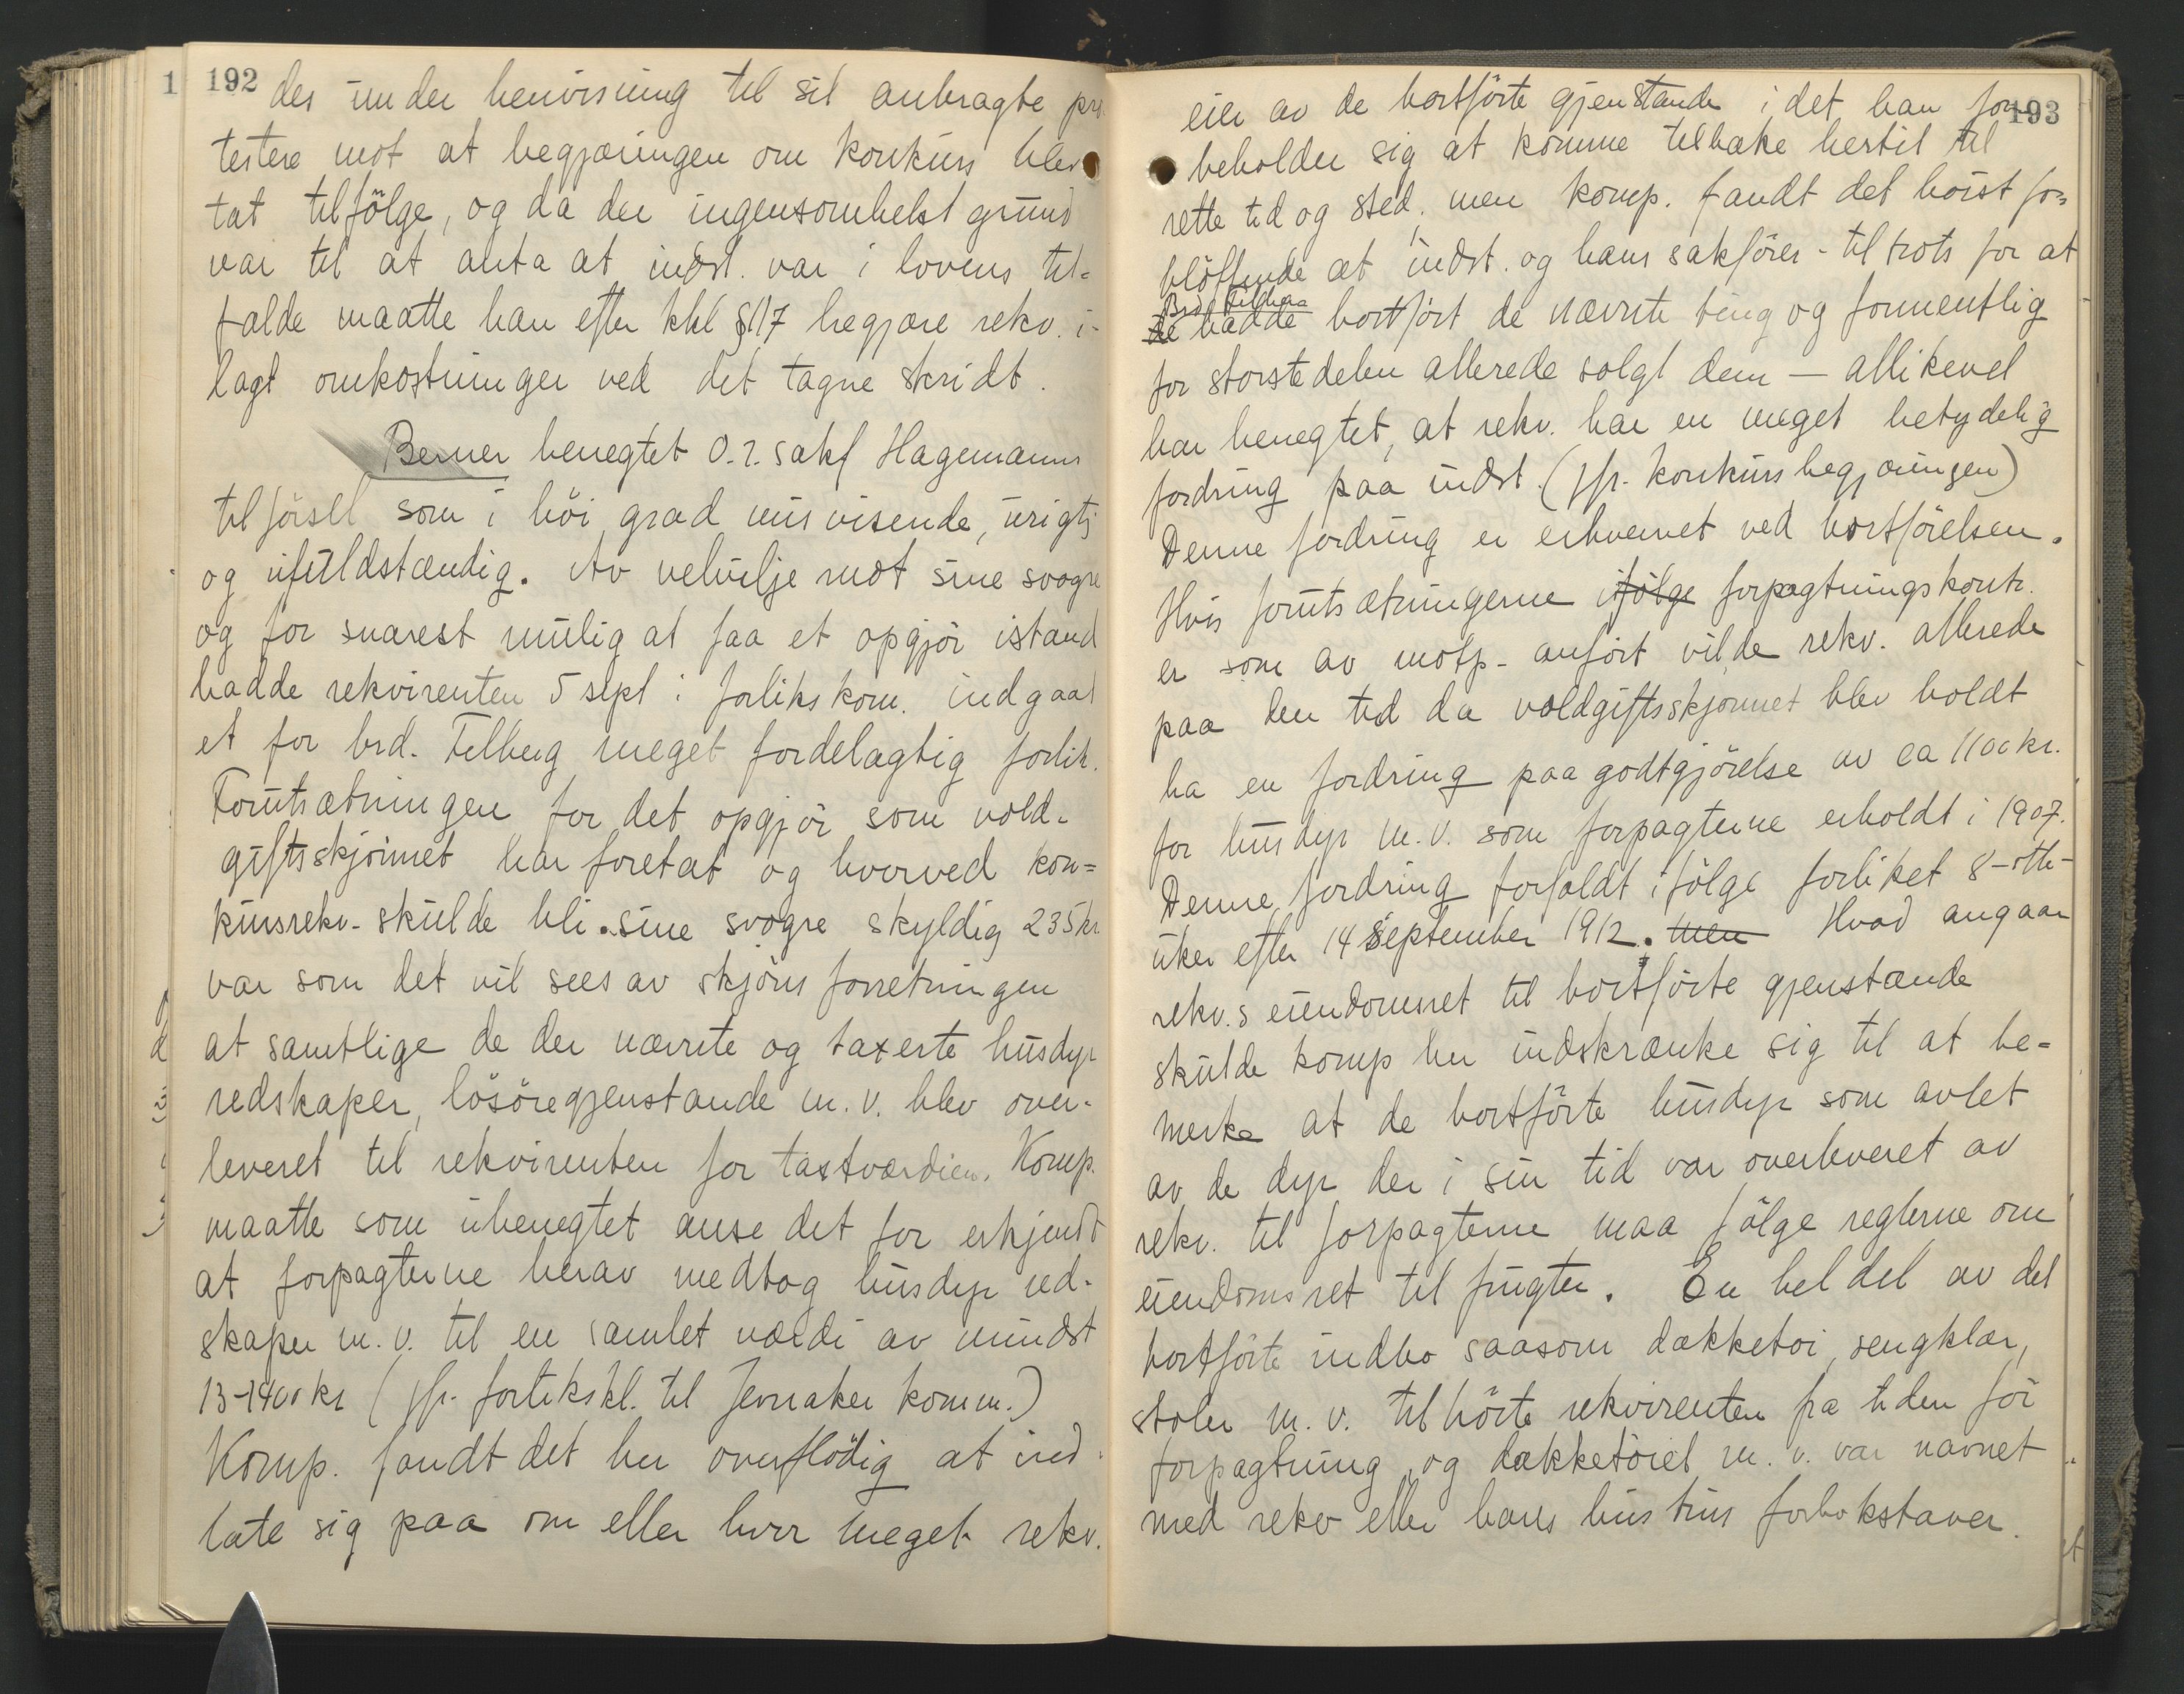 192
des under henvisning til sit anbragte pro
testere mot at begjæringen om konkurs blev
tat tilfölge, og da der ingensomhelst grund
var til at anta at indst. var i lovens til-
falde maatte han efter kkl §117 begjære rekv. i-
lagt omkostninger ved det tagne skridt.
Berner benegtet O.r.sakf Hagemanns
tilförsel som i höi grad misvisende, urigtig
og ufuldstændig. Av velvilje mot sine svogre
og for snarest mulig at faa et opgjör istand
hadde rekvirenten 5 sept i forlikskom. indgaat
et for brd. Filberg meget fordelagtig forlik.
Forutsætningen for det opgjör som vold-
giftsskjönnet har foretat og hvorved kon=
kursrekv. skulde bli sine svogre skyldig 235 kr
var som det vil sees av skjönsforretningen
at samtlige de der nævnte og taxerte husdyr
redskaper, lösöregjenstande m.v. blev over-
leveret til rekvirenten for tastværdien. Komp.
maatte som ubenegtet anse det for erkjendt
at forpagterne herav medtog husdyr red-
skaper m.v. til en samlet værdi av mindst
13-1400 kr (jfr. forlikskl. til Jevnaker komm.)
Komp. fandt det her overflödig at ind-
late sig paa om eller hvor meget rekv.
193
eier av de bortförte gjenstande idet han for-
beholder sig at komme tilbake hertil til
rette tid og sted, men komp. fandt det höist for=
blöffende at indst. og hans sakförer - til trots for at
Brd. Filberg
de hadde bortfört de nævnte ting og formentlig
for störstedelen allerede solgt dem — allikevel
har benegtet, at rekv. har en meget betydelig
fordring paa indst. (jfr. konkursbegjæringen)
Denne fordring er erhvervet ved bortförelsen.
Hvis forutsætningerne ifölge forpagtningskontr.
er som av motp. anfört vilde rekv. allerede
paa den tid da voldgiftsskjönnet blev holdt
ha en fordring paa godtgjörelse av ca 1100 kr.
for husdyr m.v. som forpagterne erholdt i 1907.
Denne fordring forfaldt ifölge forliket 8-otte-
uker efter 14 September 1912. men Hvad angaar
rekv.s eiendomsret til bortförte gjenstande
skulde komp her indskrænke sig til at be=
merke at de bortförte husdyr som avlet
av de dyr der i sin tid var overleveret av
rekv. til forpagterne maa fölge reglerne om
eiendomsret til frugter. En hel del av det
bortförte indbo saasom dækketöi, sengklær,
stoler m.v. tilhörte rekvirenten fra tiden för
forpagtning, og dækketöiet m.v. var navnet
med rekv eller hans hustrus forbokstaver.